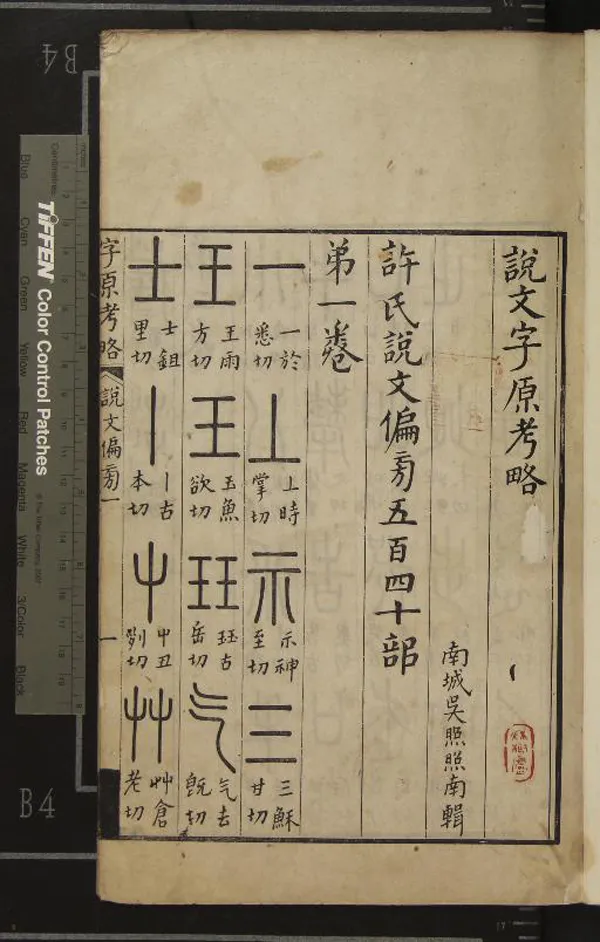 說文字原考略
南城吳照照南輯
許氏說文偏旁五百四十部
弟一卷
一 一於悉切 丄 上時掌切 示 示神至切 三 三穌甘切
王 王雨方切 王 玉魚欲切 玨 玨古岳切 气 气去旣切
士 士鉏里切 丨 丨古本切 屮 屮丑列切 艸 艸倉老切
字原考略 說文偏旁一 一
TIFFEN Color Control Patches
© The Tiffen Company, 2007
Centimetres
Inches
Blue
Cyan
Green
Yellow
Red
Magenta
White
3/Color
Black
B4
B4